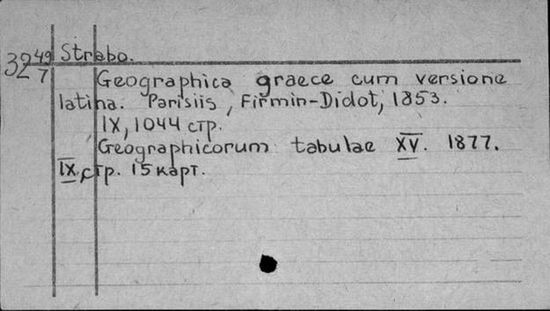 32 49/7 Strabo.
Geographica graece cum versione
latina. Parisiis, Firmin-Didot, 1853.
IX, 1044 стр.
Geographicorum tabulae XV. 1877.
IX, стр. 15 карт.